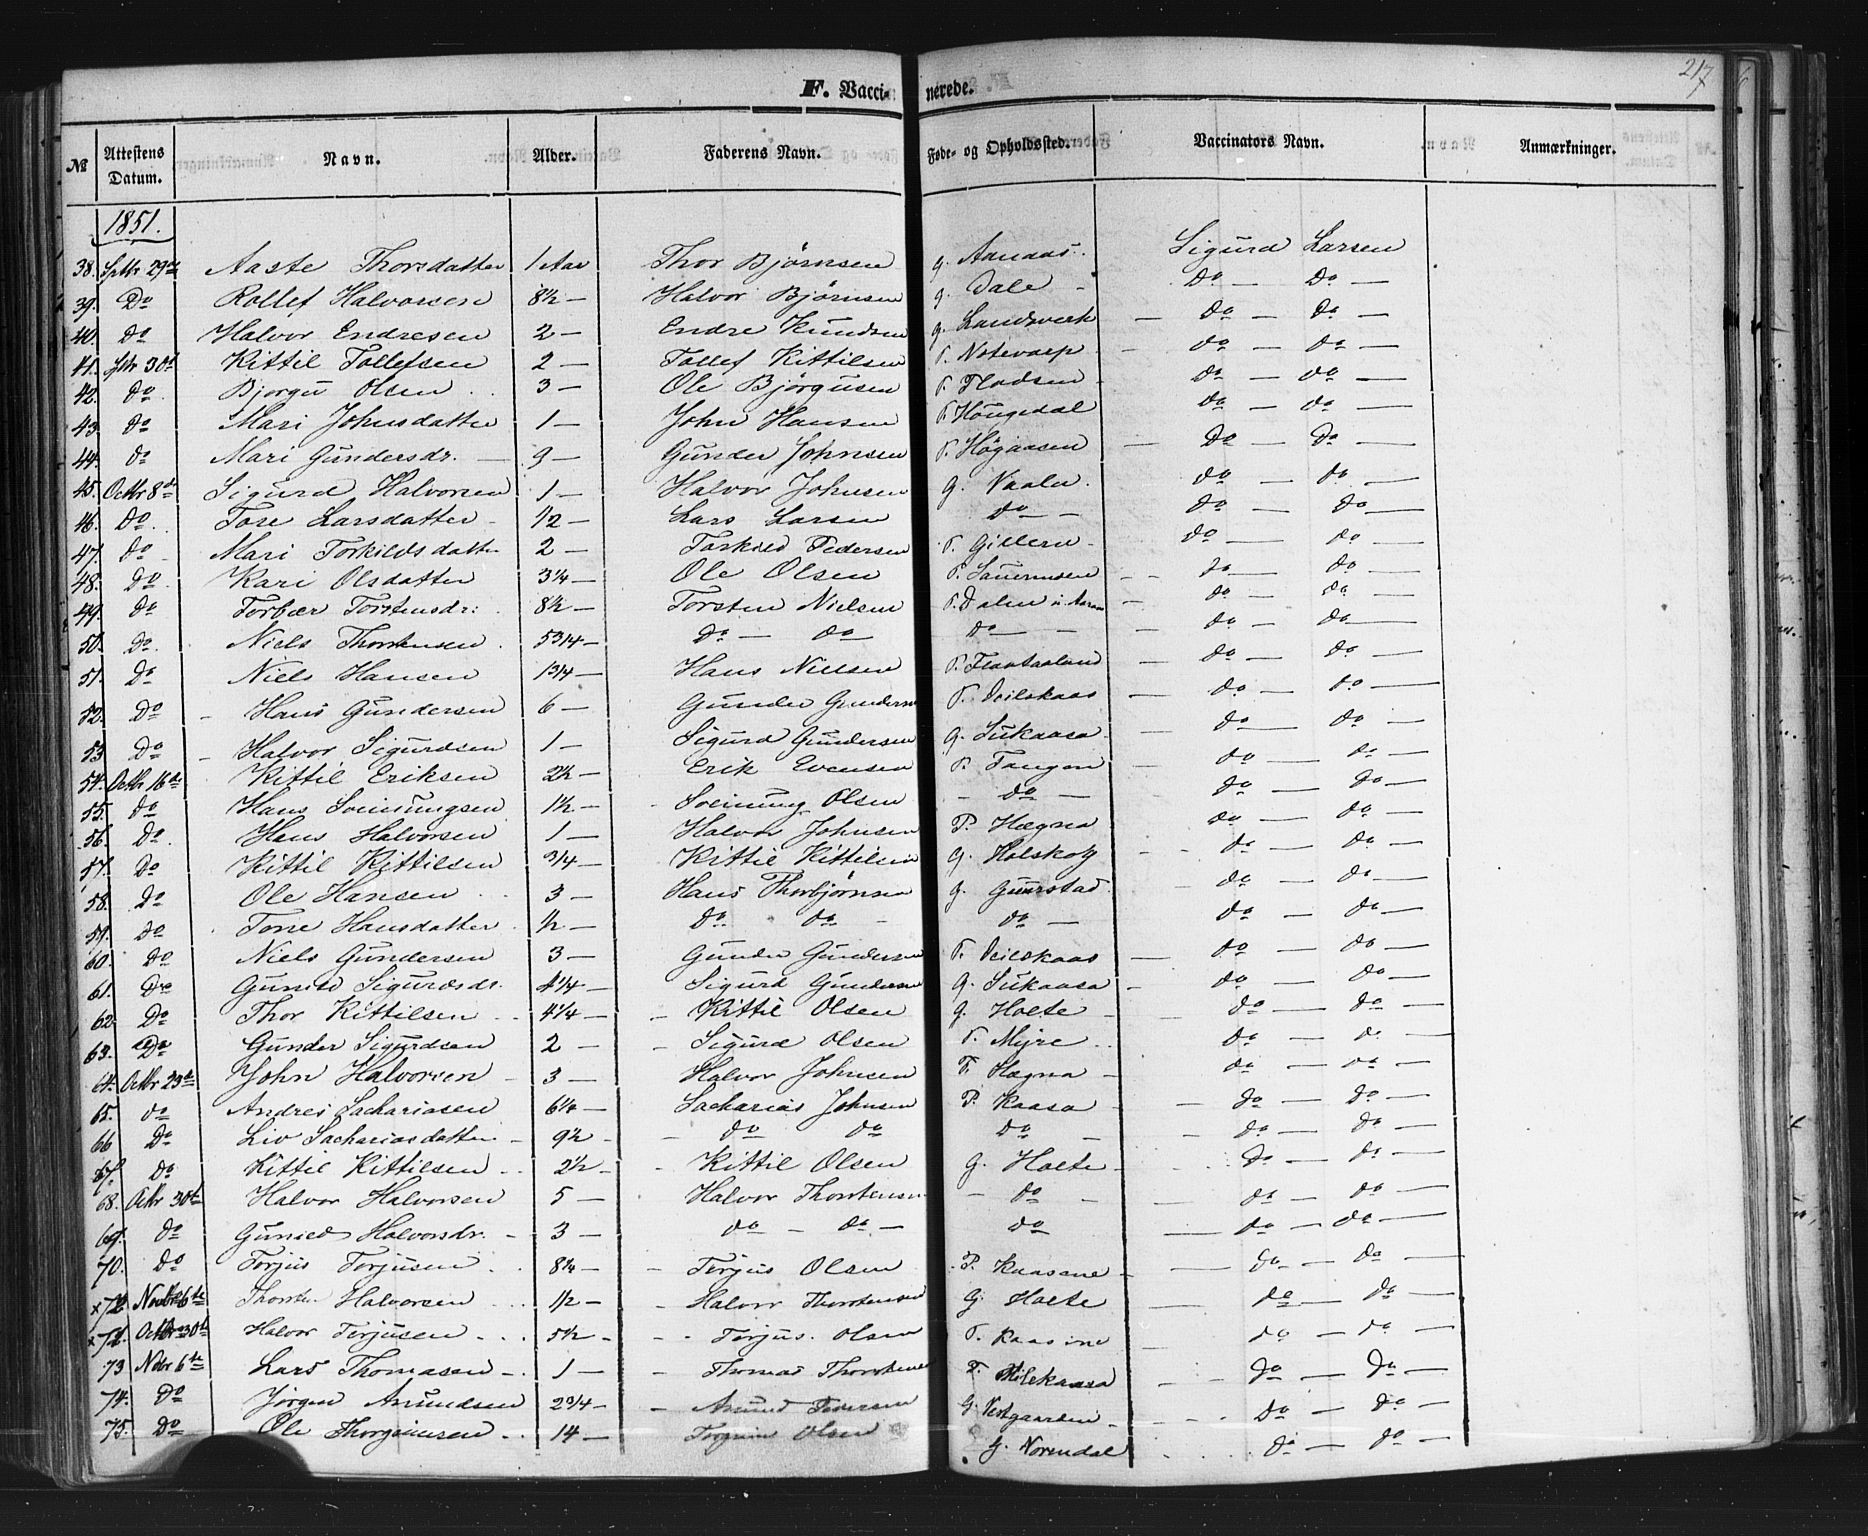 217
F. Vaccinerede.
№ | Attestens Datum. | Navn. | Alder. | Faderens Navn. | Føde- og Opholdssted. | Vaccinators Navn. | Anmærkninger.
1851.
38. Sptbr 29de Aaste Thorsdatter 1 Aar Thor Bjørnsen g. Aanaas. Sigurd Larsen
39. Do Rollef Halvorsen 8½ — Halvor Bjørnsen g. Dale - Do — Do —
40. Do Halvor Endresen 2 — Endre Knudsen g. Landsverk — Do — Do —
41. Sptbr 30te Kittil Tollefsen 2 — Tollef Kittilsen P. Notevarp - Do — Do —
42. Do Bjorgu Olsen 3 — Ole Bjørgusen P. Flodsen - Do — Do —
43. Do Mari Johnsdatter 1 — John Hansen P. Hougedal Do — Do —
44. Do Mari Gundersdr. — 9 — Gunder Johnsen P. Högaasen — Do — Do —
45. Octbr 8de Sigurd Halvorsen 1 — Halvor Johnsen g. Vaaln. Do — Do —
46. Do Tore Larsdatter 1/2 — Lars Larsen Do — Do — Do —
47. Do Mari Torkildsdatter 2 — Torkild Pedersen P. Gillern - Do — Do —
48. Do Kari Olsdatter 3¼ — Ole Olsen P. - - Do — Do —
49. Do Torbær Torstensdr: 8½ — Torsten Nielsen P. Dalen - Do — Do —
50. Do Niels Thorstensen 5 3/4 — Do — Do Do — — Do — Do —
51. Do Niels Hansen 1 3/4 — Hans Nielsen P. Flaataaland — Do — Do —
52. Do - Hans Gundersen 6 — Gunder Gundersen P. Deilskaas — Do — Do —
53 Do - Halvor Sigurdsen 1 — Sigurd Gundersen g. Sukaasa - Do — Do —
54. Octbr 16de Kittil Eriksen 2½ — Erik Evensen P. Tangen Do — Do —
55. Do Hans Sveinungsen 1½ — - Sveinung Olsen - Do — Do — Do —
56. Do Hans Halvorsen 1 — Halvor Johnsen P. Hægna Do — Do —
57. Do Kittil Kittilsen 3/4 — Kittil Kittilsen g. Holskog - - Do — Do —
58. Do Ole Hansen 3 — Hans Thorbjørnsen g. Guurstad - Do — Do —
59. Do Tone Hansdatter ½ — Do Do - Do — Do — Do —
60. Do Niels Gundersen 3 — Gunder Gundersen P. Deilskaas — Do — Do —
61. Do Gunild Sigurdsdr. 4¼ — Sigurd Gundersen g. Sukaasa - Do — Do —
62. Do Thor Kittilsen 4¼ — - Kittil Olsen g. Holte - Do — Do —
63. Do Gunder Sigurdsen 2 — - Sigurd Olsen P. Myre Do — Do —
64. Octbr 23de John Halvorsen - 3 — Halvor Johnsen P. Hægna - Do — Do —
65. Do Andres Sachariasen 6¼ — Sacharias Johnsen P. Kaasa - - Do — Do —
66 Do Liv Sachariasdatter - 9½ - - Do Do Do - - Do — Do —
67. Do Kittil Kittilsen 2½ - - Kittil Olsen g. Holte - Do — Do —
68. Octbr 30te Halvor Halvorsen 5 — Halvor Thorstensen - Do - — Do — Do —
69. Do Gunild Halvorsdr. - 3 — Do — Do — Do — Do — Do —
70. Do Torjus Torjusen 8¼ — - Terjus Olsen P. Kaasene - — Do — Do —
x72 Novbr 6te Thorsten Halvorsen 1/2 — - Halvor Thorstensen G. Holte — Do — Do —
x71. Octbr 30te Halvor Terjusen 5½ - - Terjus. Olsen P. Kaasene — Do — Do —
73 Nvbr 6te Lars Thomasen 1 — - Thomas Thorstensen P. - - Do — Do —
74. Do Jørgen Amundsen 2 3/4 — - Amund Pedersen G. Vestgaarden - - Do — Do —
75. Do Ole Thorgrimsen 14 — - Torgrim Olsen g. Norendal Do — Do —